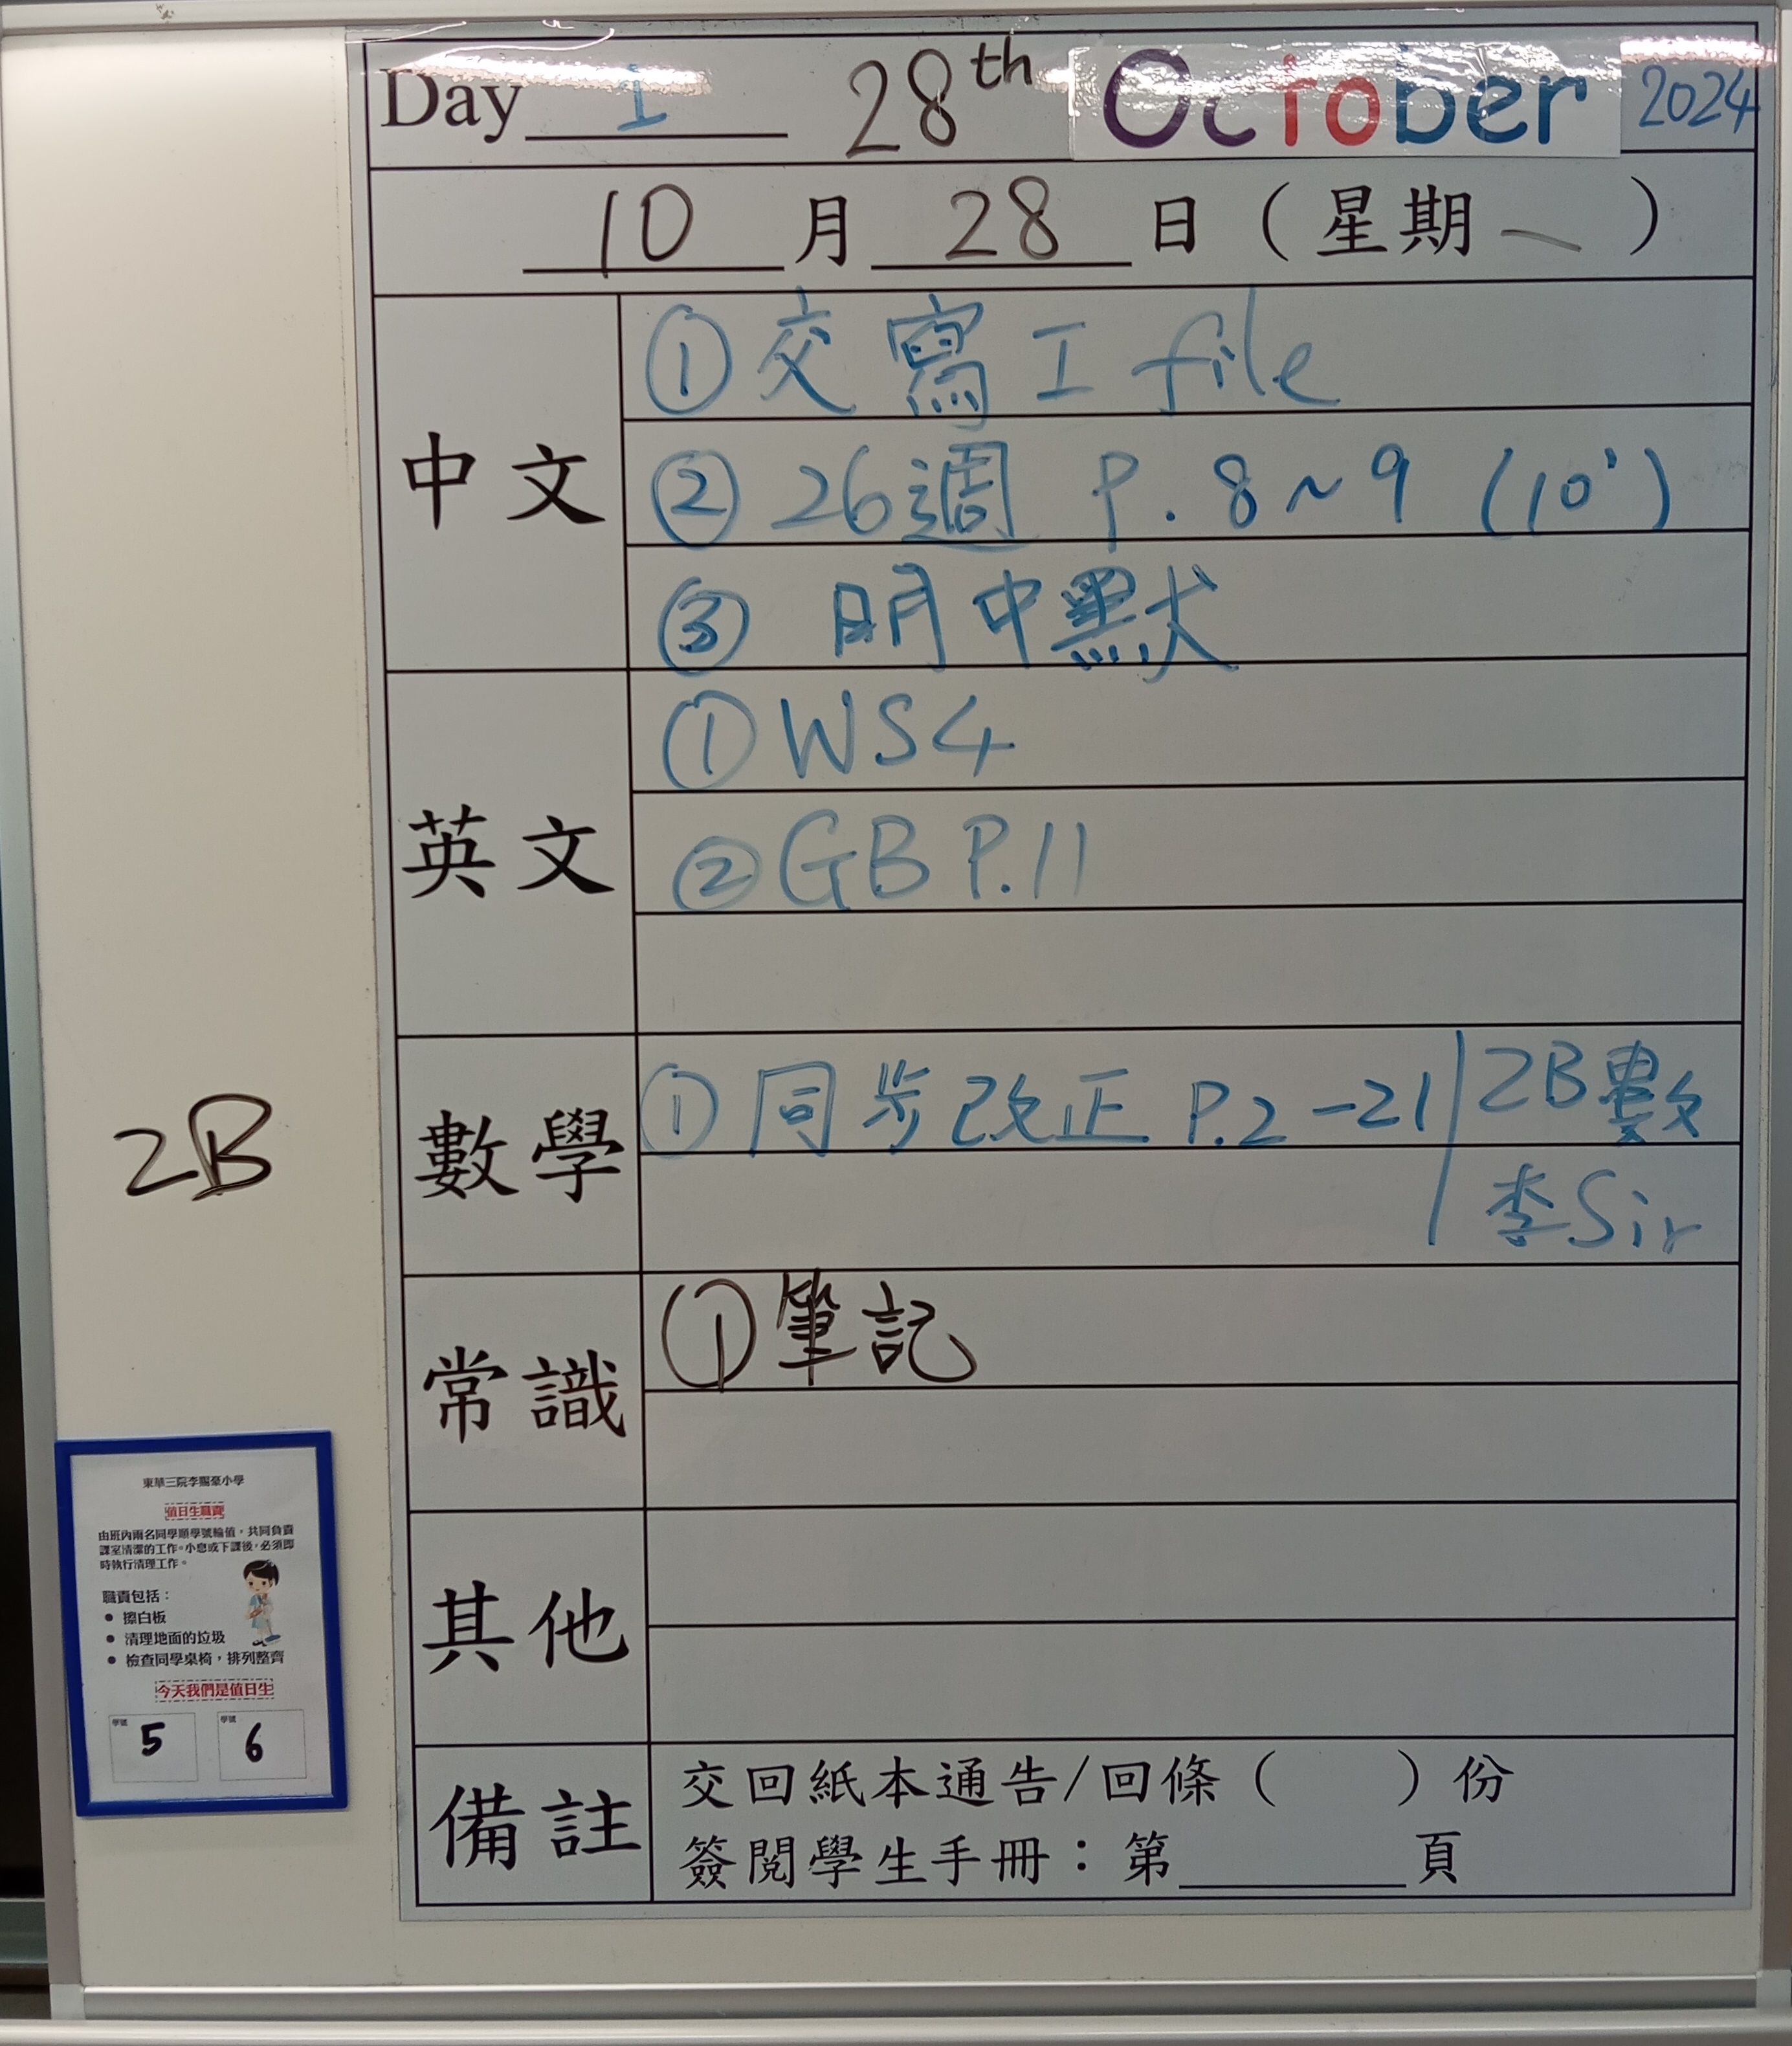 Day 1 28th October 2024
10 月 28 日 ( 星期 一 )
中文
① 交寫工 file
② 26週 P. 8~9 (10')
③ 明中默
英文
① WS4
② GB P.11
數學
① 同步改正 P.2-21 2B數
李Sir
2B
常識
① 筆記
其他
備註
交回紙本通告/回條 ( ) 份
簽閱學生手冊：第 頁
東華三院李賜豪小學
值日生職責
由班內兩名同學順學號輪值，共同負責
課室清潔的工作。小息或下課後，必須即
時執行清理工作。
職責包括：
● 擦白板
● 清理地面的垃圾
● 檢查同學桌椅，排列整齊
今天我們是值日生
學號 5 學號 6